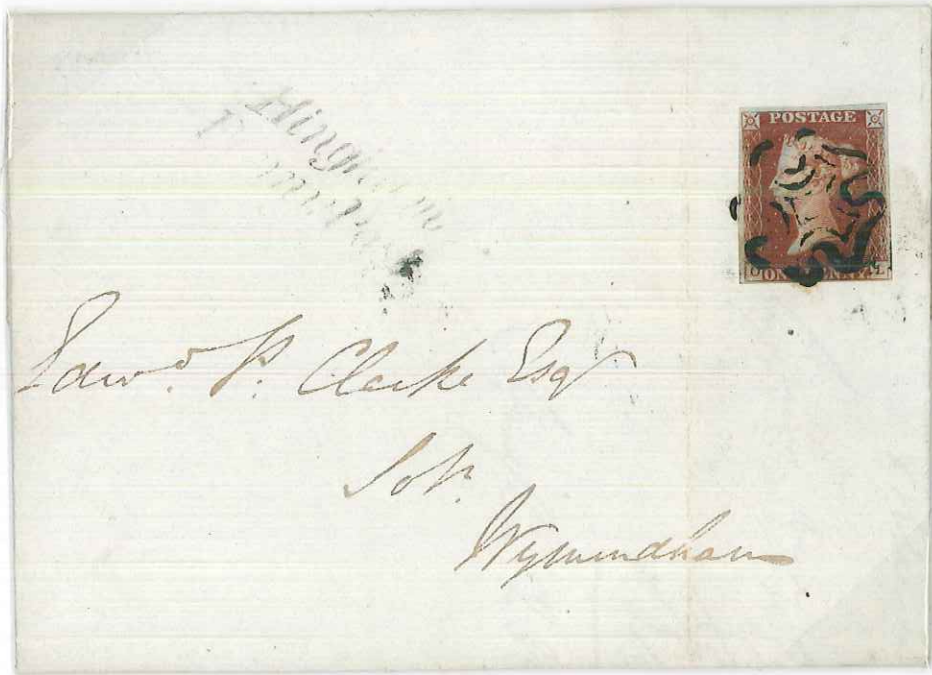 Hingham
Penny Post
POSTAGE
ONE PENNY
Edwd. P. Clarke Esqr
Solr.
Wymondham